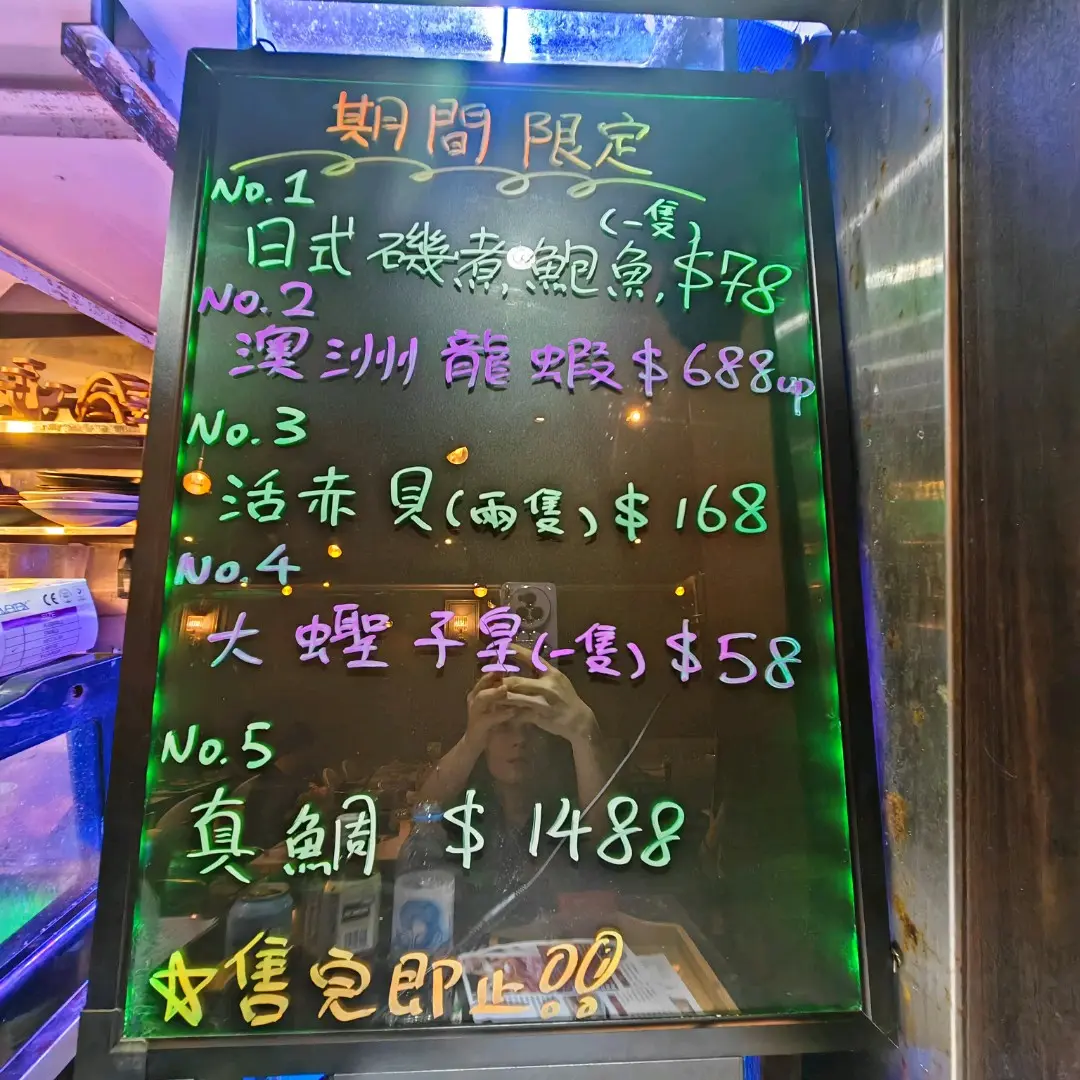 期間限定
No.1
(一隻)
日式磯煮鮑魚 $78
No.2
澳洲龍蝦 $688up
No.3
活赤貝(兩隻) $168
No.4
大蟶子皇(一隻) $58
No.5
真鯛 $1488
☆售完即止!!
CE